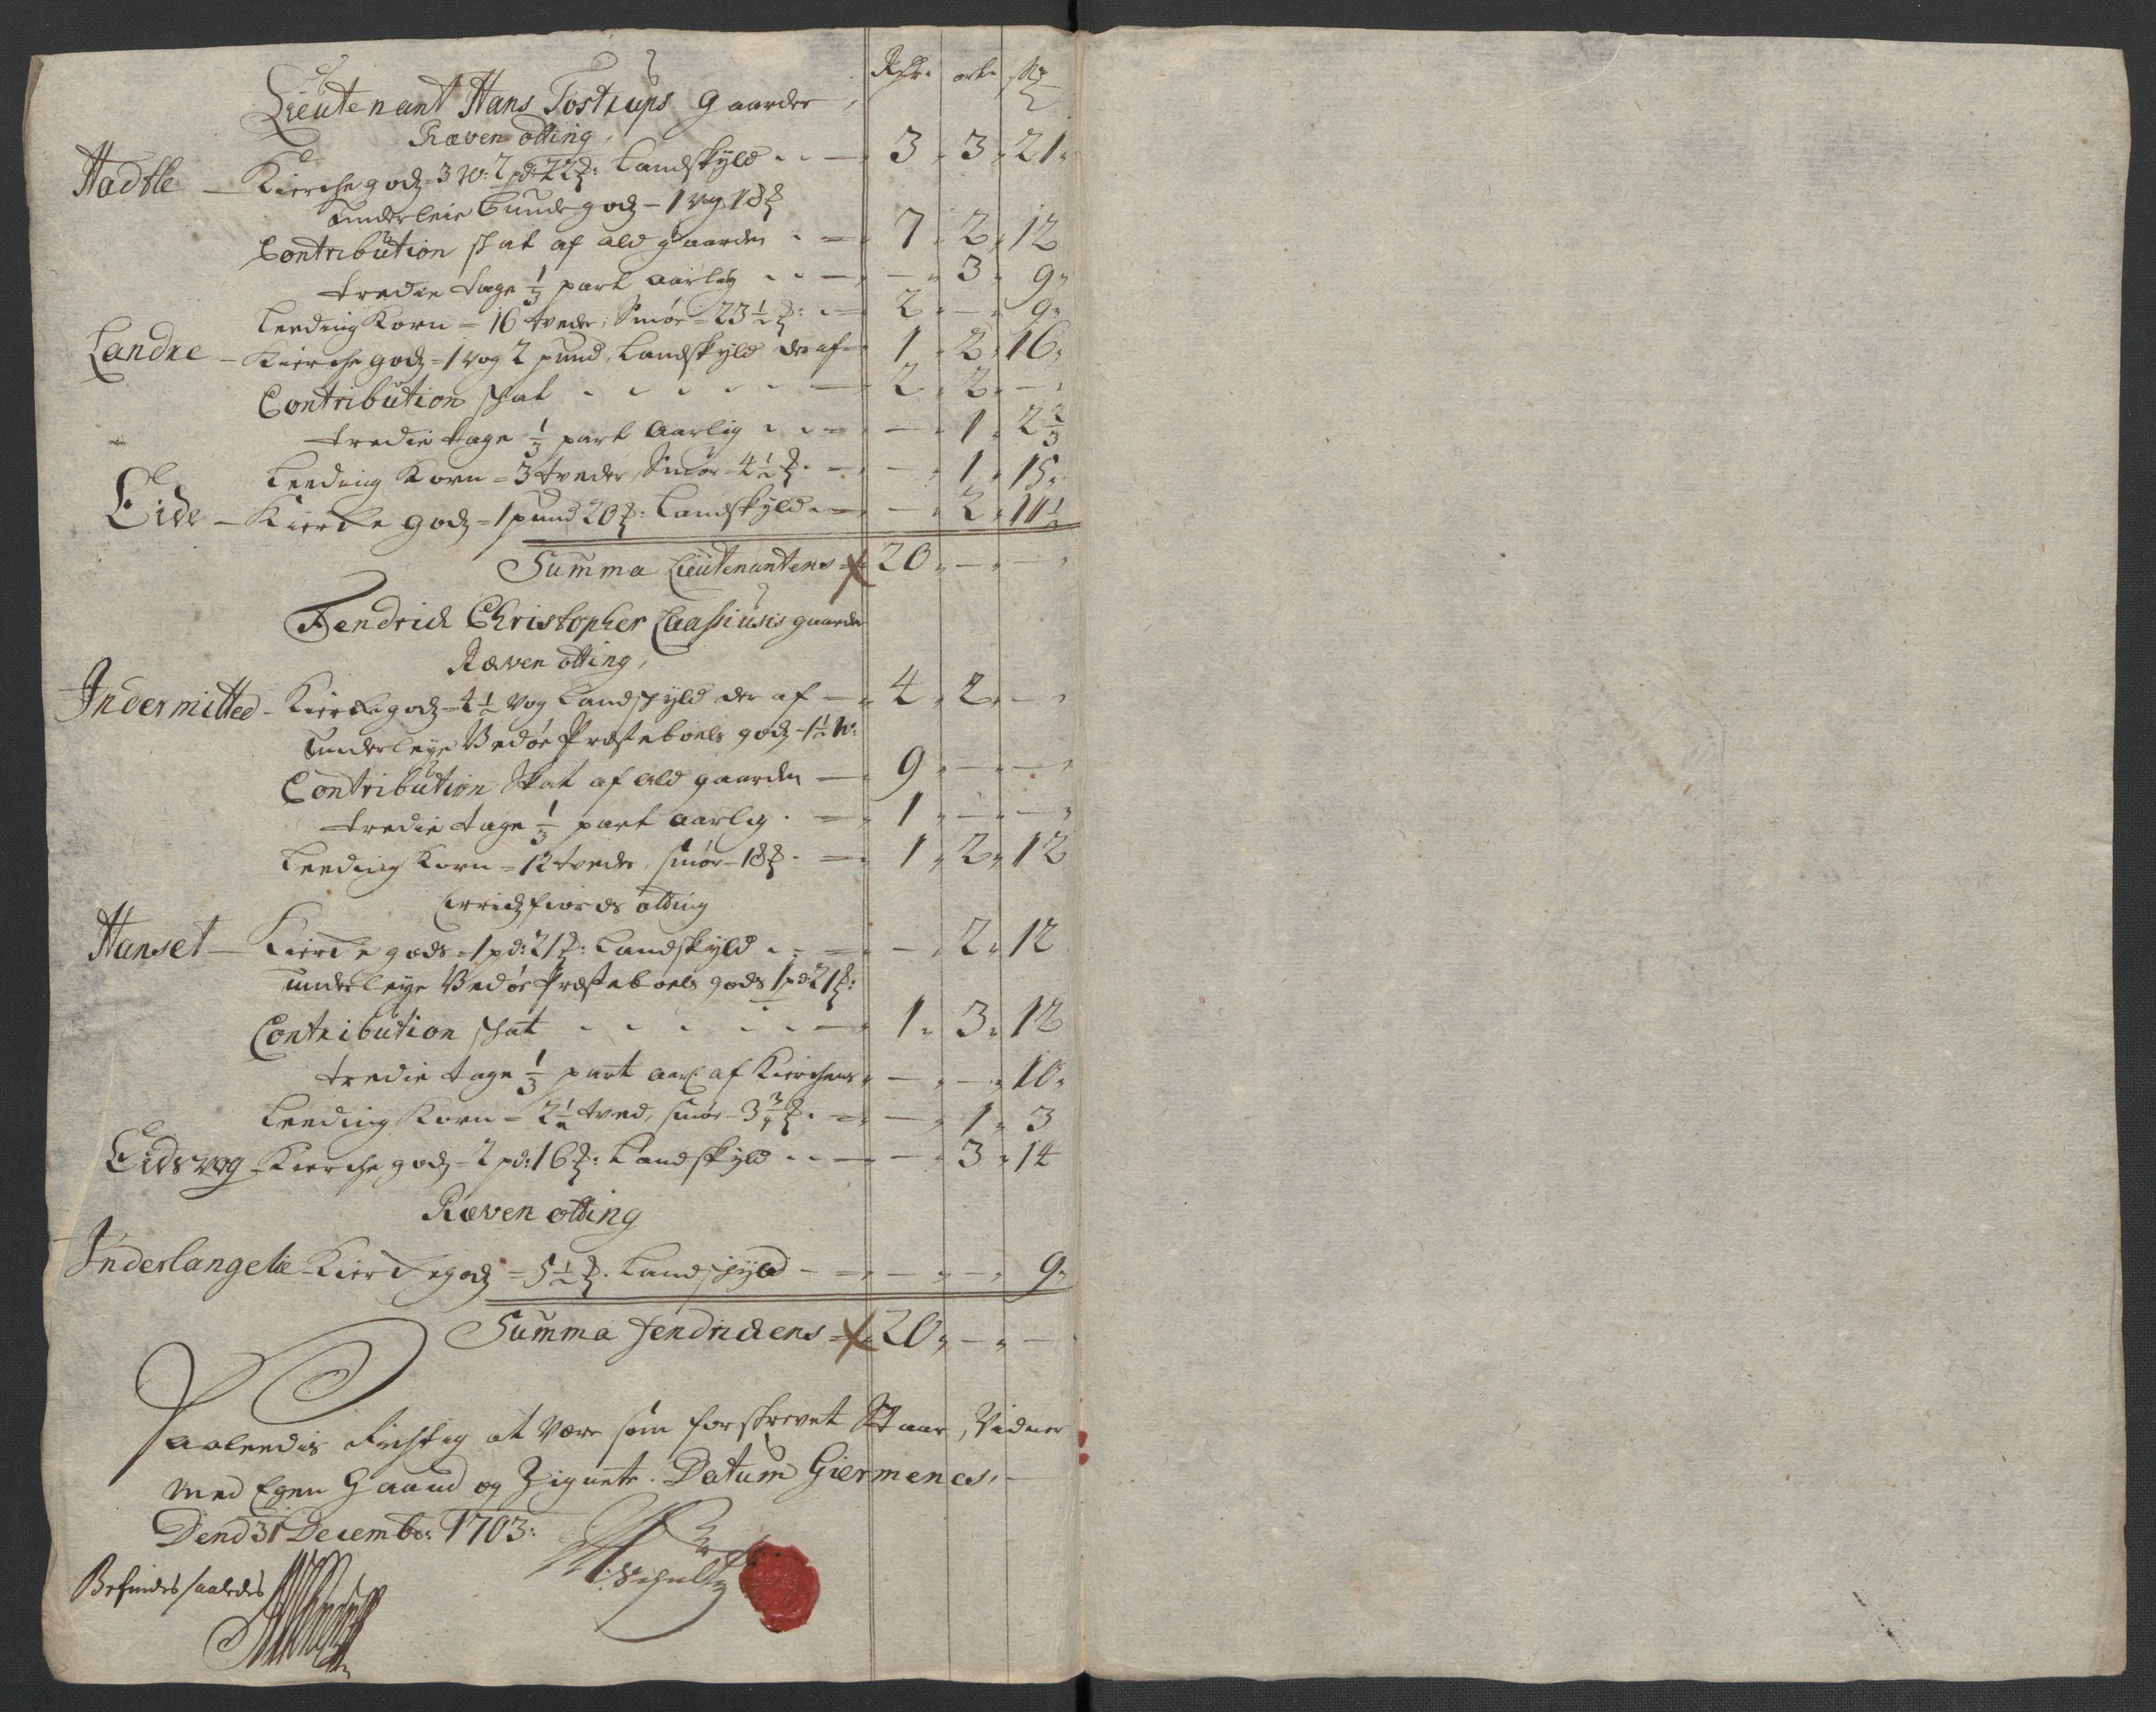 Rdr. ort. sk
Lieutenant Hans Tostrups gaarder,
Ræven otting,
Hadtle — Kierche godz - 3 w: 2 pd: 22 ℔: Landskyld . . — 3 " 3 " 21 "
Underleie Bunde godz - 1 vog 18 ℔
Contribution skat af ald gaarden . — 7 " 2 " 12
tredie tage 1/3 part aarlig . . — — " 3 " 9 "
Leeding Korn = 16 tveder, Smør - 23 1/2 ℔: . — 2 " — " 9 "
Landre — Kierche godz - 1 vog 2 pund, Landskyld der af — 1 " 2 " 16 "
Contribution skat . . . . . — 2 " 2 " — "
tredie tage 1/3 part Aarlig . . — — " 1 " 2 2/3
Leeding Korn = 3 tveder, Smør - 4 1/2 ℔ . — — " 1 " 15 "
Eide — Kierke godz - 1 pund 20 ℔: Landskyld . — — " 2 " 11 1/2
Summa Lieutenantens — 20 " — " — "
Fendrich Christopher Caassiusis gaarder
Ræven otting,
Indermitted — Kierke godz - 4 1/2 vog Landskyld der af — 4 " 2 " — "
Underleye Vedøe Præsteboels godz - 1 1/2 w:
Contribution Skat af ald gaarden — 9 " — " — "
tredie tage 1/3 part aarlig . — 1 " — " — "
Leeding Korn = 12 tveder, smør - 18 ℔ . — 1 " 2 " 12
Erridzfiords otting
Hanset — Kierke gods = 1 pd: 21 ℔: Landskyld . . — — " 2 " 12
underleye Vedøe Præsteboels gods 1 pd: 21 ℔:
Contribution skat . . . . . — 1 " 3 " 12
tredie tage 1/3 part aarl: af Kierchens " — " — " 10 "
Leeding Korn = 2 1/2 tved, smør - 3 3/4 ℔ . — — " 1 " 3
Eidsvog — Kierche godz = 2 pd: 16 ℔: Landskyld . . — — " 3 " 14
Ræven otting
Inderlangelie — Kierke godz = 5 1/2 ℔. Landskyld — — " — " 9 "
Summa fendrichens — 20 " — " —
Saaleedis rigtig at være som forskrevet Staar, Vidner
med Egen Haand og Zignete. Datum Giermenes, —
Dend 31 Decembr: 1703:
Befindes saaledes
Schultz